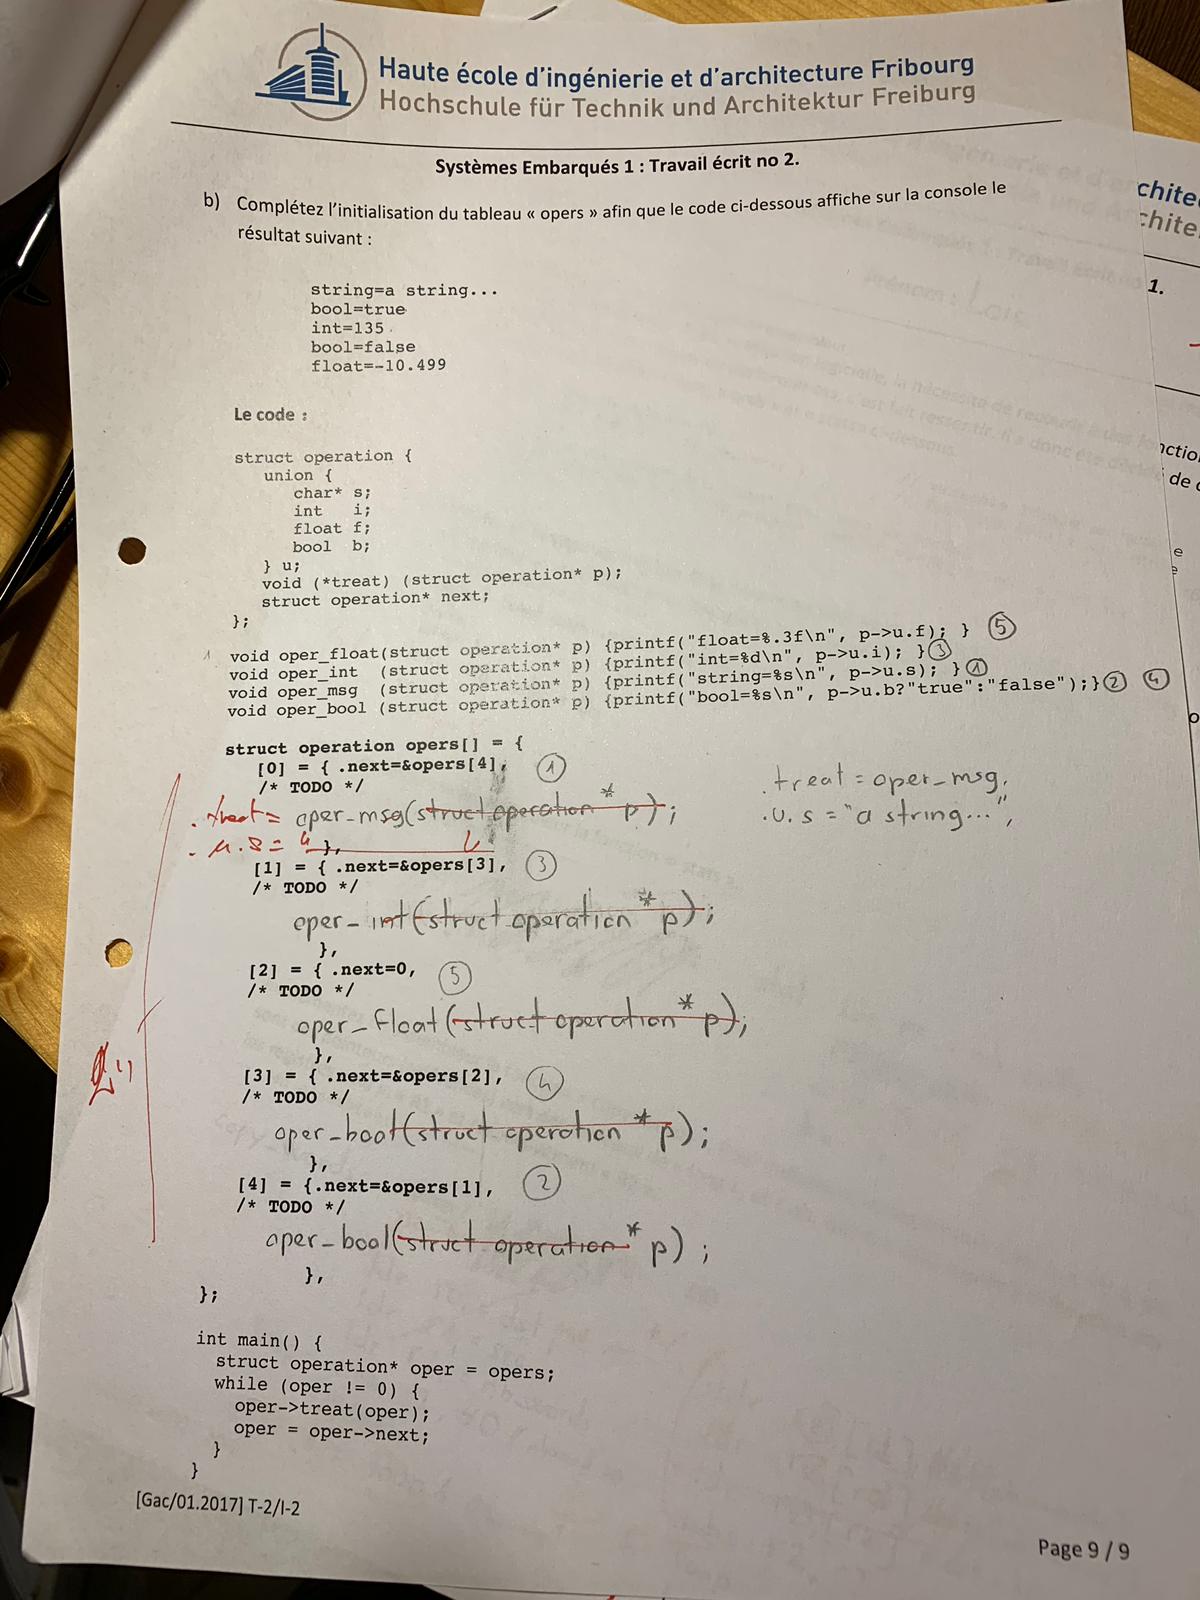 Haute école d'ingénierie et d'architecture Fribourg
Hochschule für Technik und Architektur Freiburg
Systèmes Embarqués 1 : Travail écrit no 2.
b) Complétez l'initialisation du tableau « opers » afin que le code ci-dessous affiche sur la console le
résultat suivant :
string=a string...
bool=true
int=135
bool=false
float=-10.499
Le code :
struct operation {
union {
char* s;
int i;
float f;
bool b;
} u;
void (*treat) (struct operation* p);
struct operation* next;
};
void oper_float(struct operation* p) {printf("float=%.3f\n", p->u.f); } 5
void oper_int (struct operation* p) {printf("int=%d\n", p->u.i); } 3
void oper_msg (struct operation* p) {printf("string=%s\n", p->u.s); } 1
void oper_bool (struct operation* p) {printf("bool=%s\n", p->u.b?"true":"false");} 2 4
struct operation opers[] = {
[0] = { .next=&opers[4], 1
/* TODO */
.treat = oper_msg,
.treat= oper_msg(struct operation * p);
.u.s = "a string...",
.u.s = "
},
[1] = { .next=&opers[3], 3
/* TODO */
oper_int(struct operation * p);
},
[2] = { .next=0, 5
/* TODO */
oper_float(struct operation * p);
},
[3] = { .next=&opers[2], 4
/* TODO */
oper_bool(struct operation * p);
},
[4] = {.next=&opers[1], 2
/* TODO */
oper_bool(struct operation * p) ;
},
};
int main() {
struct operation* oper = opers;
while (oper != 0) {
oper->treat(oper);
oper = oper->next;
}
}
[Gac/01.2017] T-2/I-2
Page 9 / 9
chite
chite
1.
nction
de